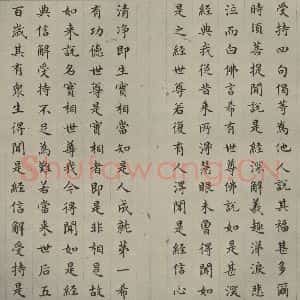 受持四句偈等為他人說其福甚多爾
時須菩提聞說是經深解義趣涕淚悲
泣而白佛言希有世尊佛說如是甚深
經典我從昔來所得慧眼未曾得聞如
是之經世尊若復有人得聞是經信心
清淨即生實相當知是人成就第一希
有功德世尊是實相者即是非相是故
如來說名實相世尊我今得聞如是經
典信解受持不足為難若當來世後五
百歲其有眾生得聞是經信解受持是
Shufawang.CN